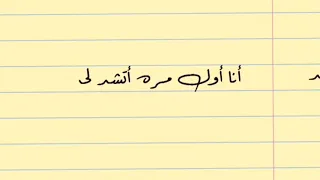 أنا أول مره أتشد لى